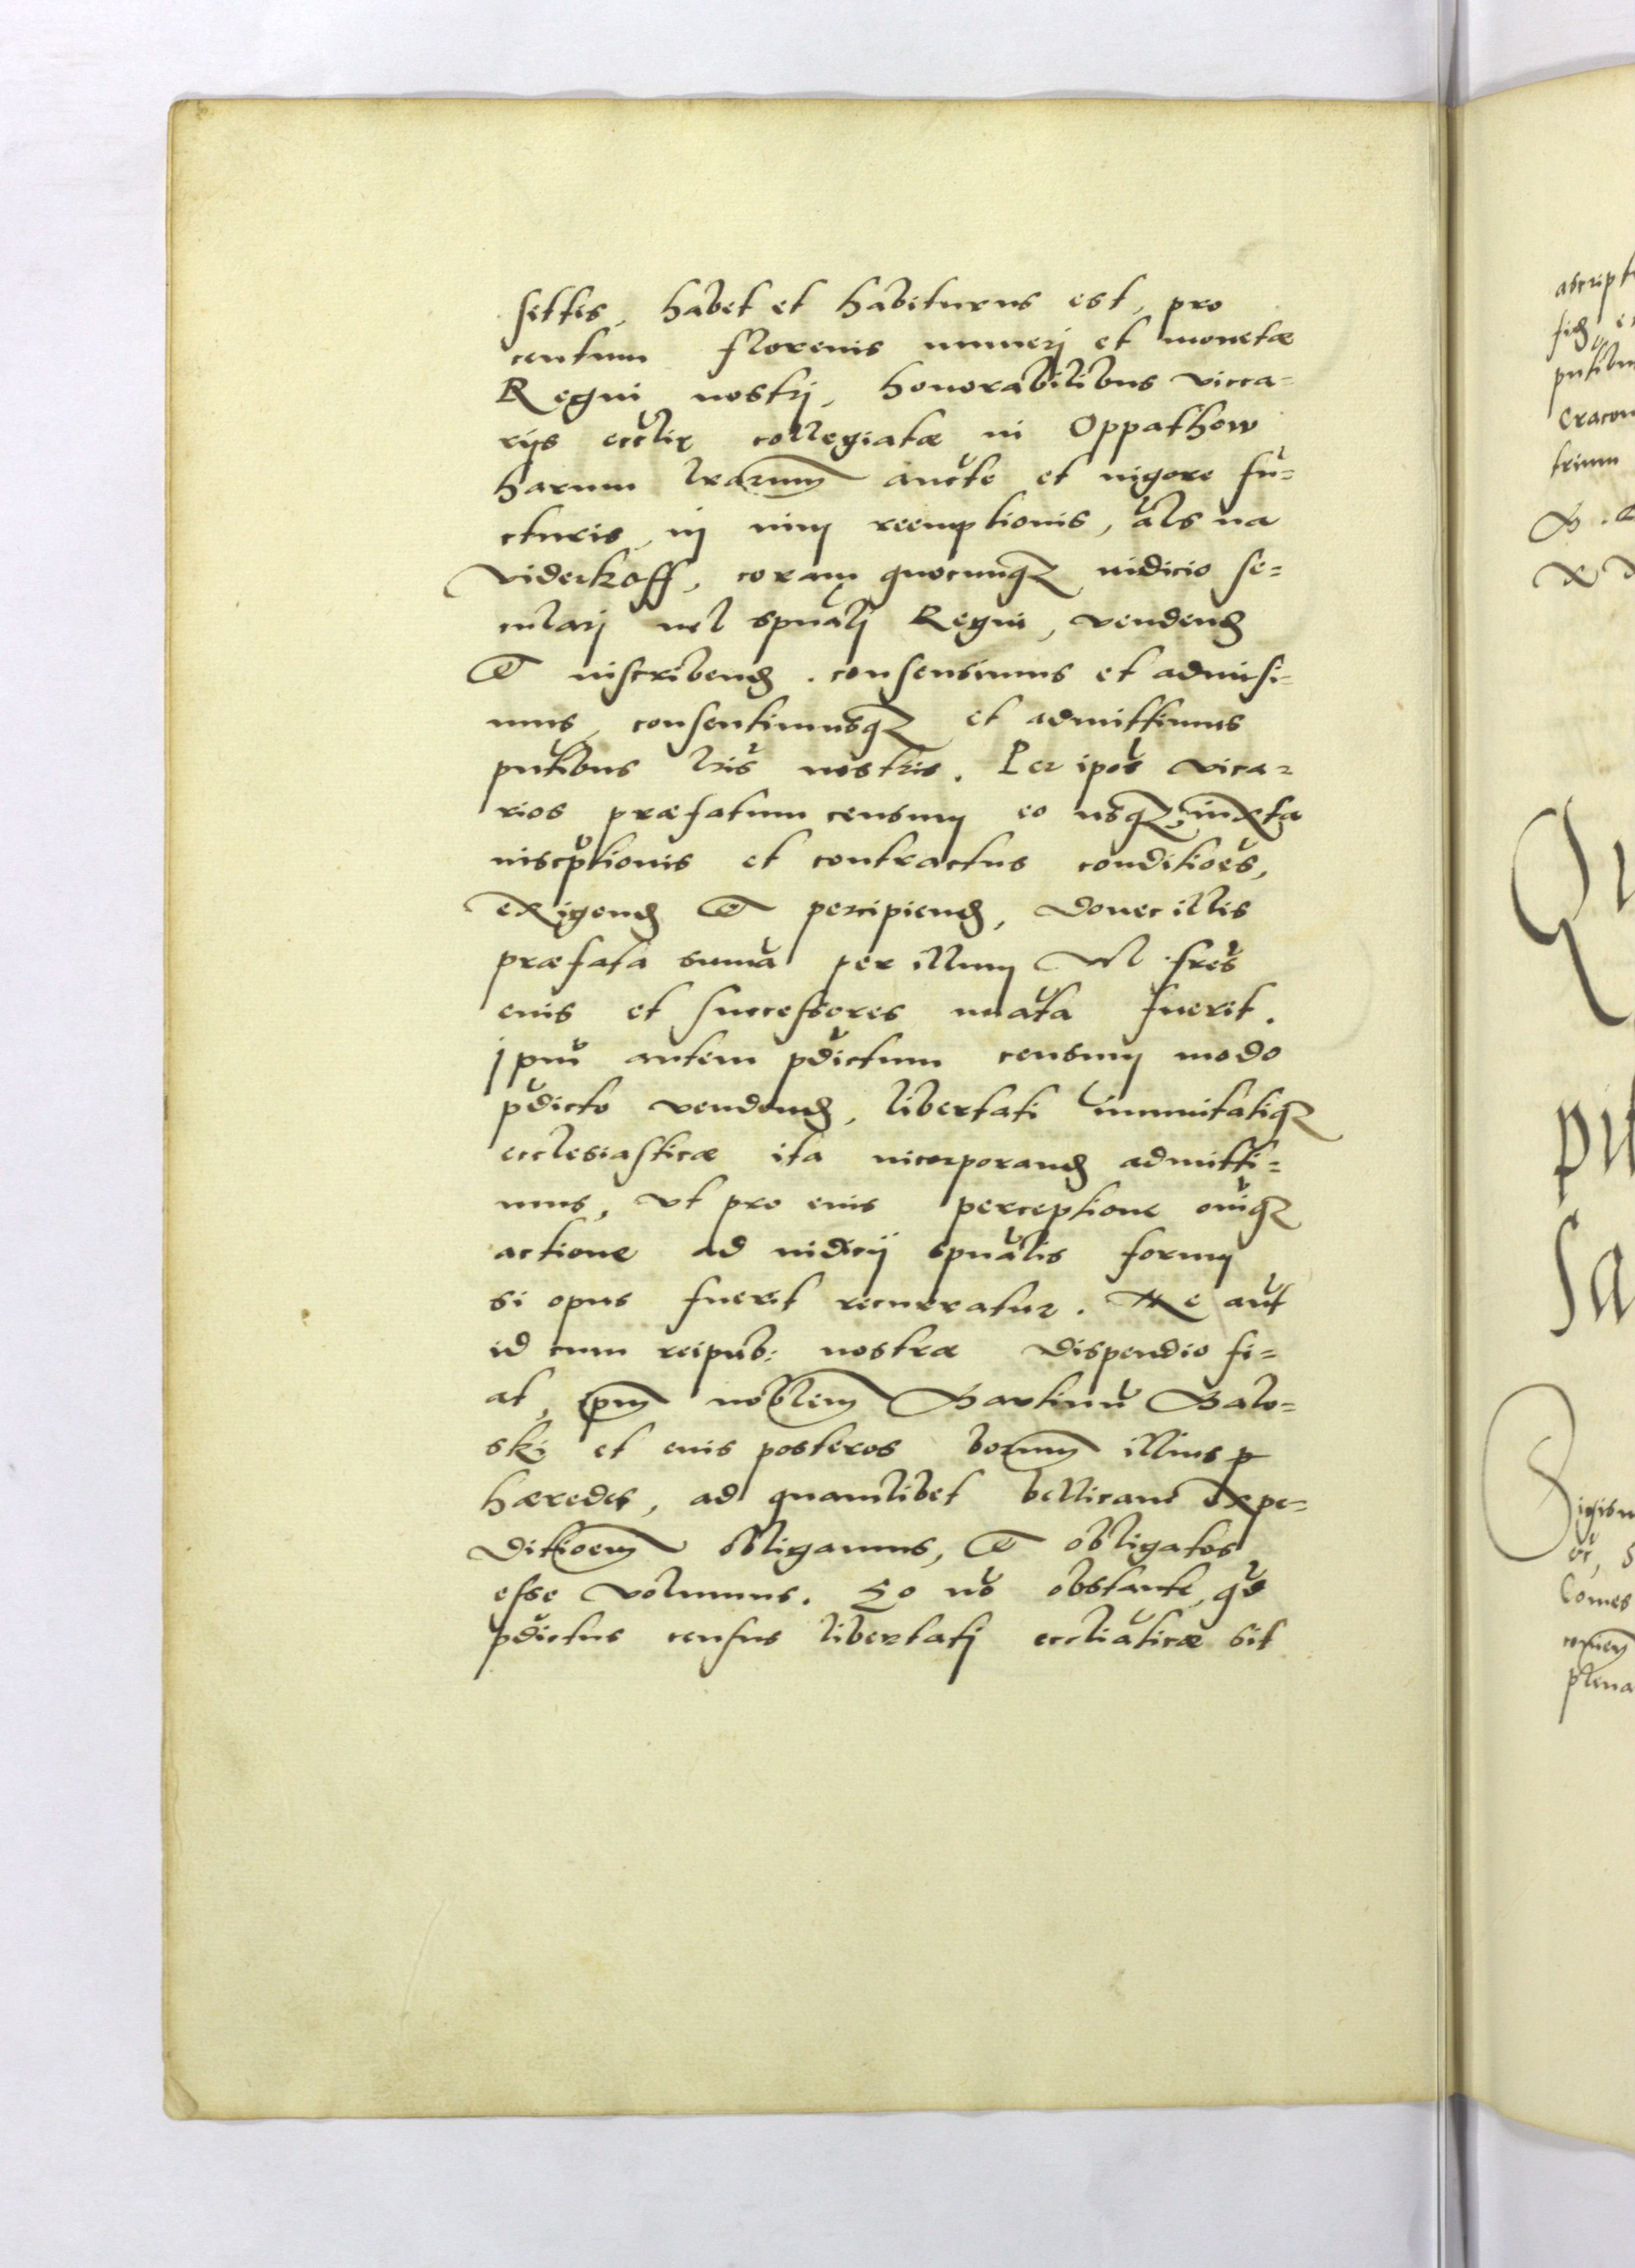 settis, habet et habiturus est, pro
centum florenis numeri et monetæ
Regni nostrj, honorabilibus vicca=
rijs ecclie collegiatæ in Oppathow
harum lrarum aucte et uigore fu=
cturis, in uim reemptionis, als na
viderkoff, coram quocunqʒ iudicio se=
cularj uel spualj Regni, vendend
et inscribend. consensimus et admisi=
mus, consentimusqʒ et admittimus
pntibus lris nostris. Per ipos vica=
rios præfatum censum eo usqʒ, iuxta
inscptionis et contractus conditioes,
exigend et percipiend, donec illis
præfata suma per illum vl fres
eius et successores nuata fuerit.
ipm autem pdictum censum modo
pdicto vendend, libertati immunitatiqʒ
ecclesiasticæ ita incorporand admitti=
mus, vt pro eius perceptione omiqʒ
actione ad iudicij spualis formam
si opus fuerit recurratur. Ne aut
id cum reipub: nostræ dispendio fi=
at, ipm noblem Martinu Galo=
ski et eius posteros bonorum illius p
hæredes, ad quamlibet bellicam expe=
ditioem obligamus, et obligatos
esse volumus. Eo no obstante, qd
pdictus census libertatj eccliaticæ sit
ascript
fid, e
pntibu
Craco
trium
pu
sa
Sigism
Comes
plena